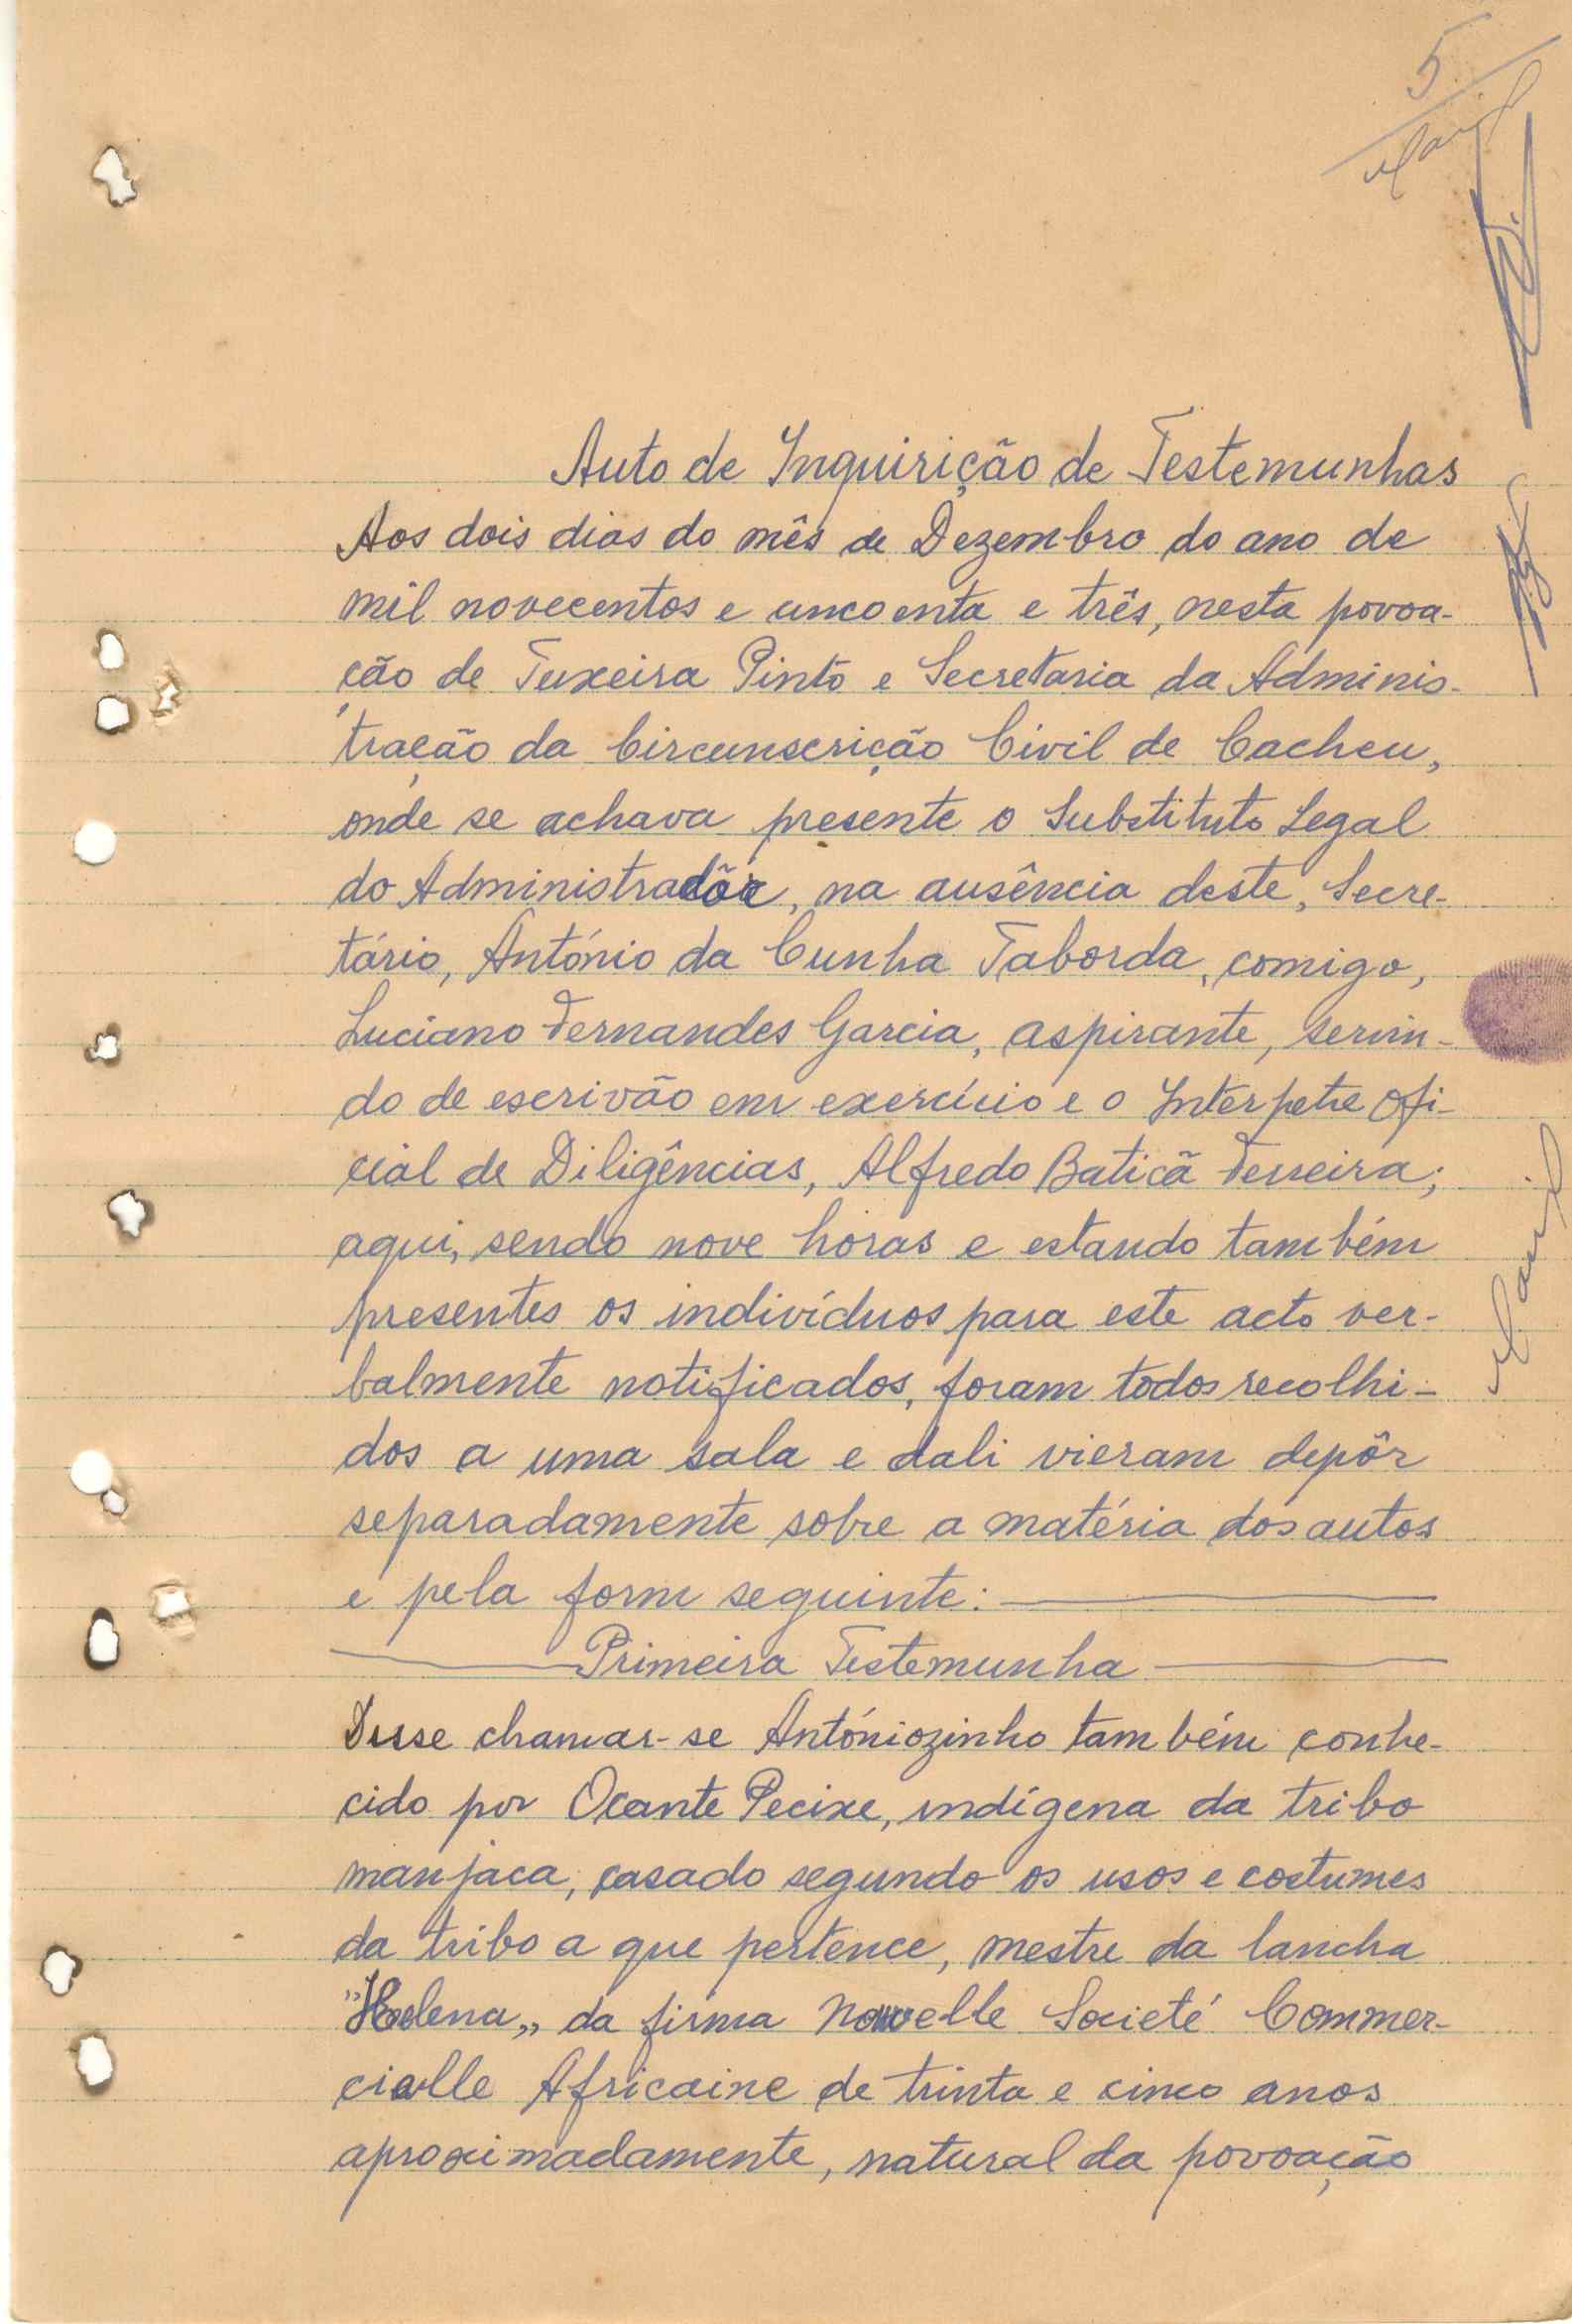 5
Auto de Inquirição de Testemunhas
Aos dois dias do mês de Dezembro do ano de
mil novecentos e cincoenta e três, nesta povoa-
ção de Teixeira Pinto e Secretaria da Adminis-
tração da Circunscrição Civil de Cacheu,
onde se achava presente o Substituto Legal
do Administradôr, na ausência deste, Secre-
tário, António da Cunha Taborda, comigo,
Luciano Fernandes Garcia, aspirante, servin-
do de escrivão em exercício e o Interpetre Ofi-
cial de Diligências, Alfredo Baticã Ferreira;
aqui, sendo nove horas e estando também
presentes os indivíduos para este acto ver-
balmente notificados, foram todos recolhi-
dos a uma sala e dali vieram depôr
separadamente sobre a matéria dos autos
e pela form seguinte:
Primeira Testemunha
Disse chamar-se Antóniozinho também conhe-
cido por Ocante Pecixe, indígena da tribo
manjaca, casado segundo os usos e costumes
da tribo a que pertence, mestre da lancha
"Helena„ da firma Nouvelle Societé Commer-
cialle Africaine de trinta e cinco anos
aproximadamente, natural da povoação